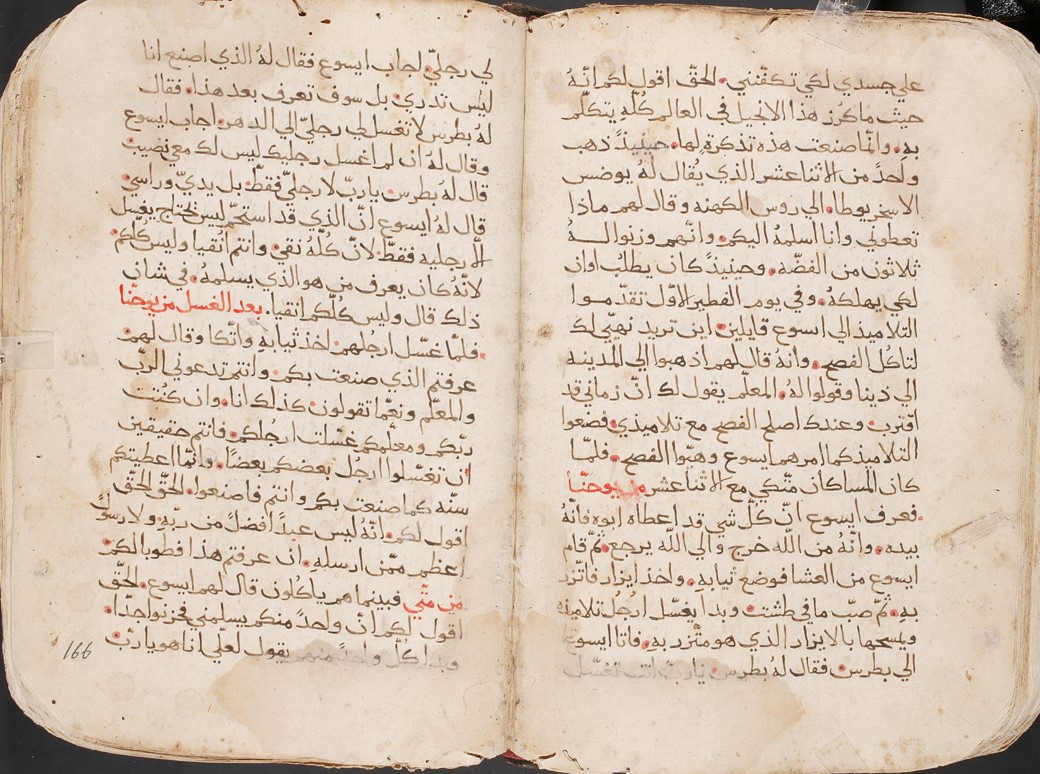 علي جسدي لكي تكفنني. الحقّ اقول لكم انّهُ
حيث ما كرز هذا الانجيل في العالم كلّهِ يتكلّم
بهِ. وانّما صنعت هذه تذكرة لها. حينيذٍ ذهب
واحدًا من الاثنا عشر الذي يُقال له يوضس
الاسخريوطا. الي روس الكهنه وقال لهم ماذا
تعطوني وانا اسلمهُ اليكم. وانّهم وزنوا لهُ
ثلاثون من الفضّه. وحينيذٍ كان يطلب اوان
لكي يهلكهُ. وفي يوم الفطير الاوّل تقدّموا
التلاميذ الي ايسوع قايلين. اين تريد نُهيّي لك
لتاكل الفصح. وانهُ قال لهم اذهبوا الي المدينه
الي ذينا وقولوا لهُ. المعلّم يقول لك انّ زماني قد
اقترب. وعندك اصلح الفصح مع تلاميذي. فصنعوا
التلاميذ كما امرهم ايسوع وهيّوا الفصح. فلمّا
كان المسا كان متّكي مع الاثنا عشر من يوحنّا
.فعرف ايسوع انّ كلّ شي قد اعطاه ابوه فانّهُ
بيده. وانّهُ من اللّه خرج والي اللّه يرجع. ثمّ قام
ايسوع من العشا فوضع ثيابهِ. واخذ ايزار فاتّزر
بهِ. ثمّ صبّ ما في طشت. وبدا يغسّل ارجُل تلاميذه
ويمسحها بالايزار الذي هو متّزر بهِ. فاتا ايسوع
الي بطرس. فقال لهُ بطرس. يا ربّ انت تغسّل
لي رجليّ. اجاب ايسوع فقال لهُ الذي اصنع انا
ليس تدري. بل سوف تعرف بعد هذا. فقال
لهُ بطرس لا تغسل لي رجليّ الي الدهر. اجاب ايسوع
وقال لهُ ان لم اغسل رجليك ليس لك معي نصيب
قال لهُ بطرس. يا ربّ لا رجليّ فقطّ. بل يديّ وراسي.
قال لهُ ايسوع انّ الذي قد استحمّ ليس يحتاج يغسل
الّا رجليه فقطّ. لانّ كلّهُ نقي. وانتم اتقيا وليس كلّكم.
لانّهُ كان يعرف من هو الذي يسلمهُ. في شان
ذلك قال وليس كُلّكم انقيا. بعد الغسل من يوحنّا
.فلمّا غسّل ارجُلهم. اخذ ثيابهِ واتّكا وقال لهم.
عرفتم الذي صنعت بكم. وانتم تدعوني الربّ
والمعلّم ونعمّا تقولون. كذلك انا. وان كُنت
ربّكم ومعلّمكم غسّلت ارجُلكم. فانتم حقيقين
ان تغسّلوا ارجل بعضكم بعضًا. وانّما اعطيتكم
سنّه كما صنعت بكم وانتم فاصنعوا. الحقّ الحقّ
اقول لكم. انّهُ ليس عبدًا افضلًا من ربّهِ. ولا رسولًا
اعظم ممّن ارسله. ان عرفتم هذا فطوبا لكم
من متّي فبينما هم ياكُلون قال لهم ايسوع. الحقّ
اقول لكم انّ واحدًا منكم يسلمني. فحزنوا جدّا.
وبدا كلّ واحدًا منهم يقول لعلّي انا هو يا ربّ.
166